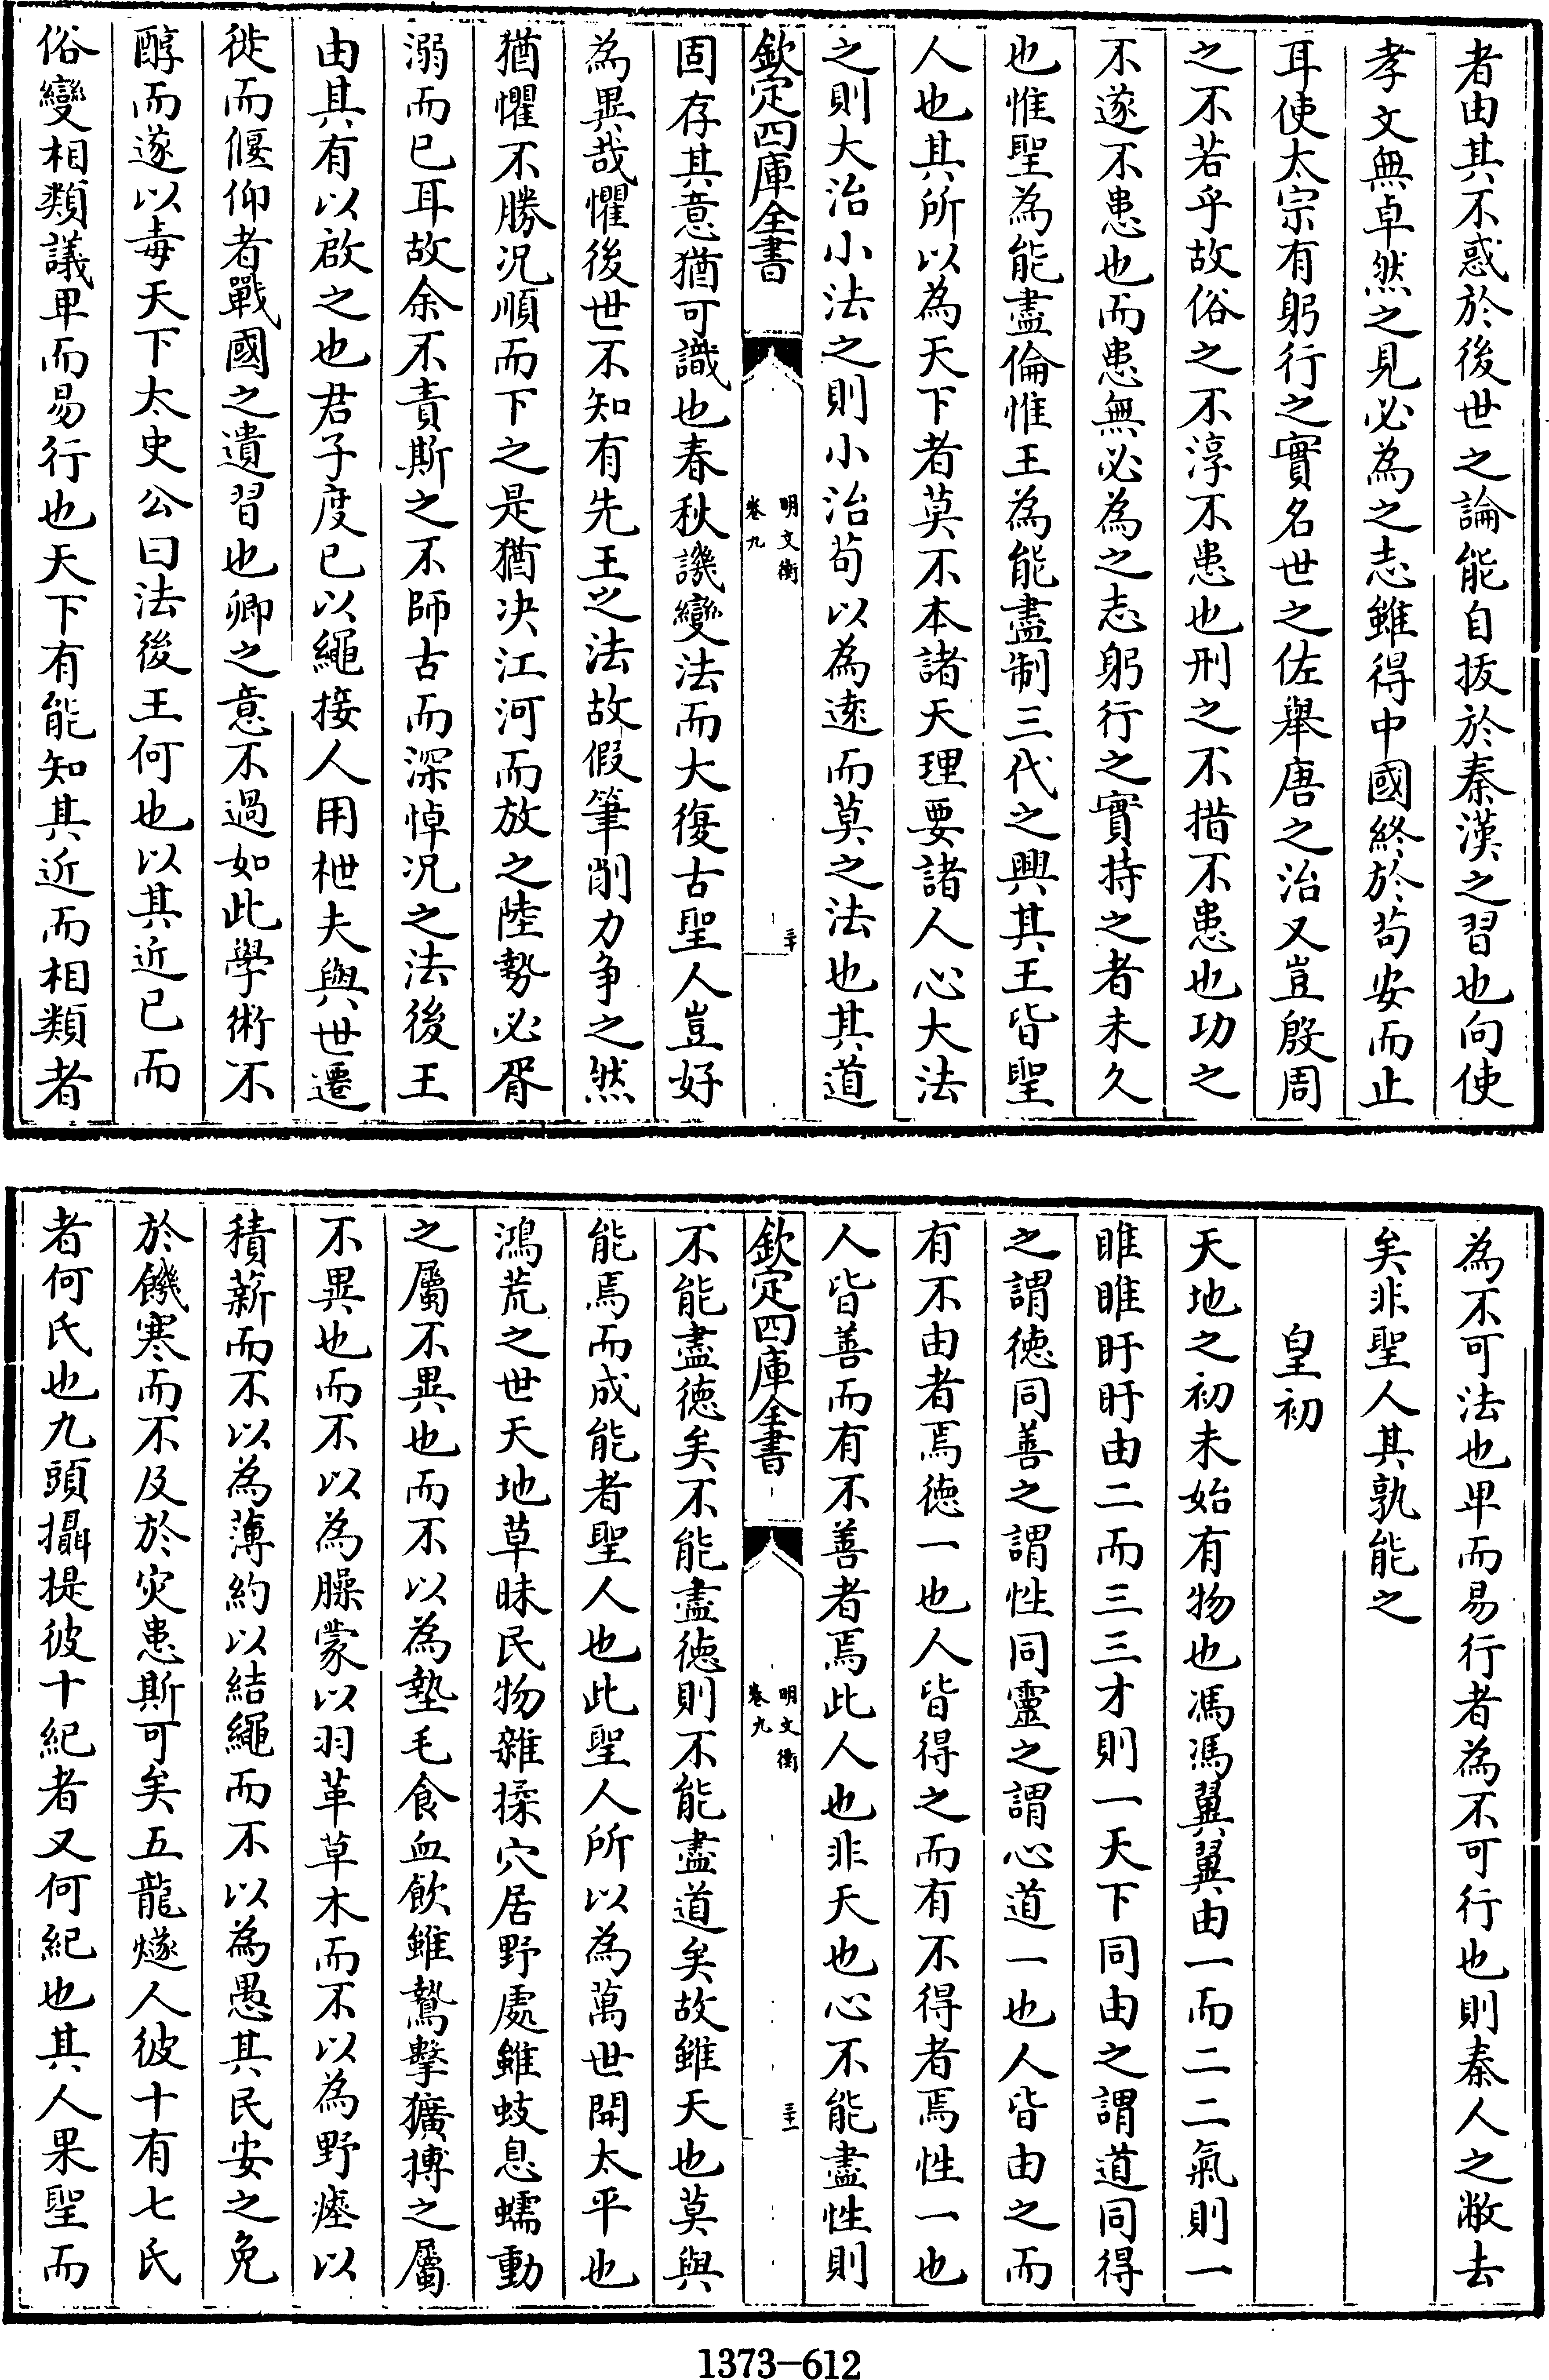 者由其不惑於後世之論能自拔於秦漢之習也向使
孝文無卓然之見必為之志雖得中國終於苟安而止
耳使太宗有躬行之實名世之佐舉唐之治又豈殷周
之不若乎故俗之不淳不患也刑之不措不患也功之
不遂不患也而患無必為之志躬行之實持之者未久
也惟聖為能盡倫惟王為能盡制三代之興其王皆聖
人也其所以為天下者莫不本諸天理要諸人心大法
之則大治小法之則小治苟以為遠而莫之法也其道
欽定四庫全書
明文衡
卷九
三十
固存其意猶可識也春秋譏變法而大復古聖人豈好
為異哉懼後世不知有先王之法故假筆削力爭之然
猶懼不勝况順而下之是猶决江河而放之陸勢必胥
溺而已耳故余不責斯之不師古而深悼况之法後王
由其有以啟之也君子度已以繩接人用枻夫與世遷
徙而偃仰者戰國之遺習也卿之意不過如此學術不
醇而遂以毒天下太史公曰法後王何也以其近已而
俗變相類議卑而易行也天下有能知其近而相類者
為不可法也卑而易行者為不可行也則秦人之敝去
矣非聖人其孰能之
皇初
天地之初未始有物也馮馮翼翼由一而二二氣則一
睢睢盱盱由二而三三才則一天下同由之謂道同得
之謂徳同善之謂性同靈之謂心道一也人皆由之而
有不由者焉徳一也人皆得之而有不得者焉性一也
人皆善而有不善者焉此人也非天也心不能盡性則
欽定四庫全書
明文衡
卷九
三十一
不能盡徳矣不能盡徳則不能盡道矣故雖天也莫與
能焉而成能者聖人也此聖人所以為萬世開太平也
鴻荒之世天地草昧民物雜揉穴居野處雖蚑息蠕動
之屬不異也而不以為墊毛食血飲雖鷙擊獷搏之屬
不異也而不以為臊蒙以羽革草木而不以為野瘞以
積薪而不以為薄約以結繩而不以為愚其民安之免
於饑寒而不及於灾患斯可矣五龍燧人彼十有七氏
者何氏也九頭攝提彼十紀者又何紀也其人果聖而
1373-612